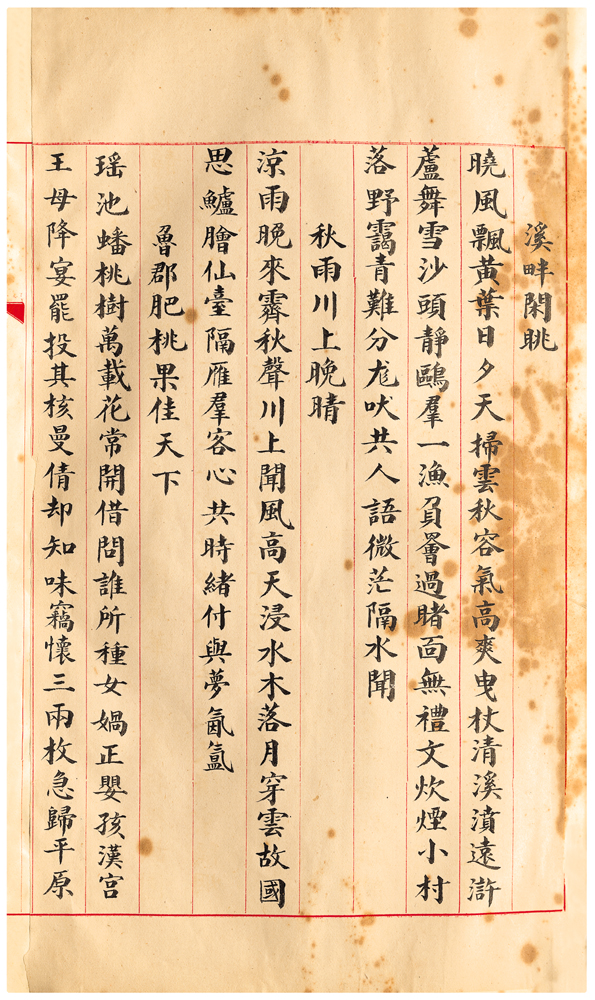 溪畔閑眺
曉風飄黃葉日夕天掃雲秋容氣高爽曳杖清溪濆遠滸
蘆舞雪沙頭靜鷗羣一漁負罾過睹面無禮文炊煙小村
落野靄青難分尨吠共人語微茫隔水聞
秋雨川上晚晴
涼雨晚來霽秋聲川上聞風高天浸水木落月穿雲故國
思鱸膾仙臺隔雁羣客心共時緒付與夢氤氳
魯郡肥桃果佳天下
瑶池蟠桃樹萬載花常開借問誰所種女媧正嬰孩漢宮
王母降宴罷投其核曼倩却知味竊懷三兩枚急歸平原